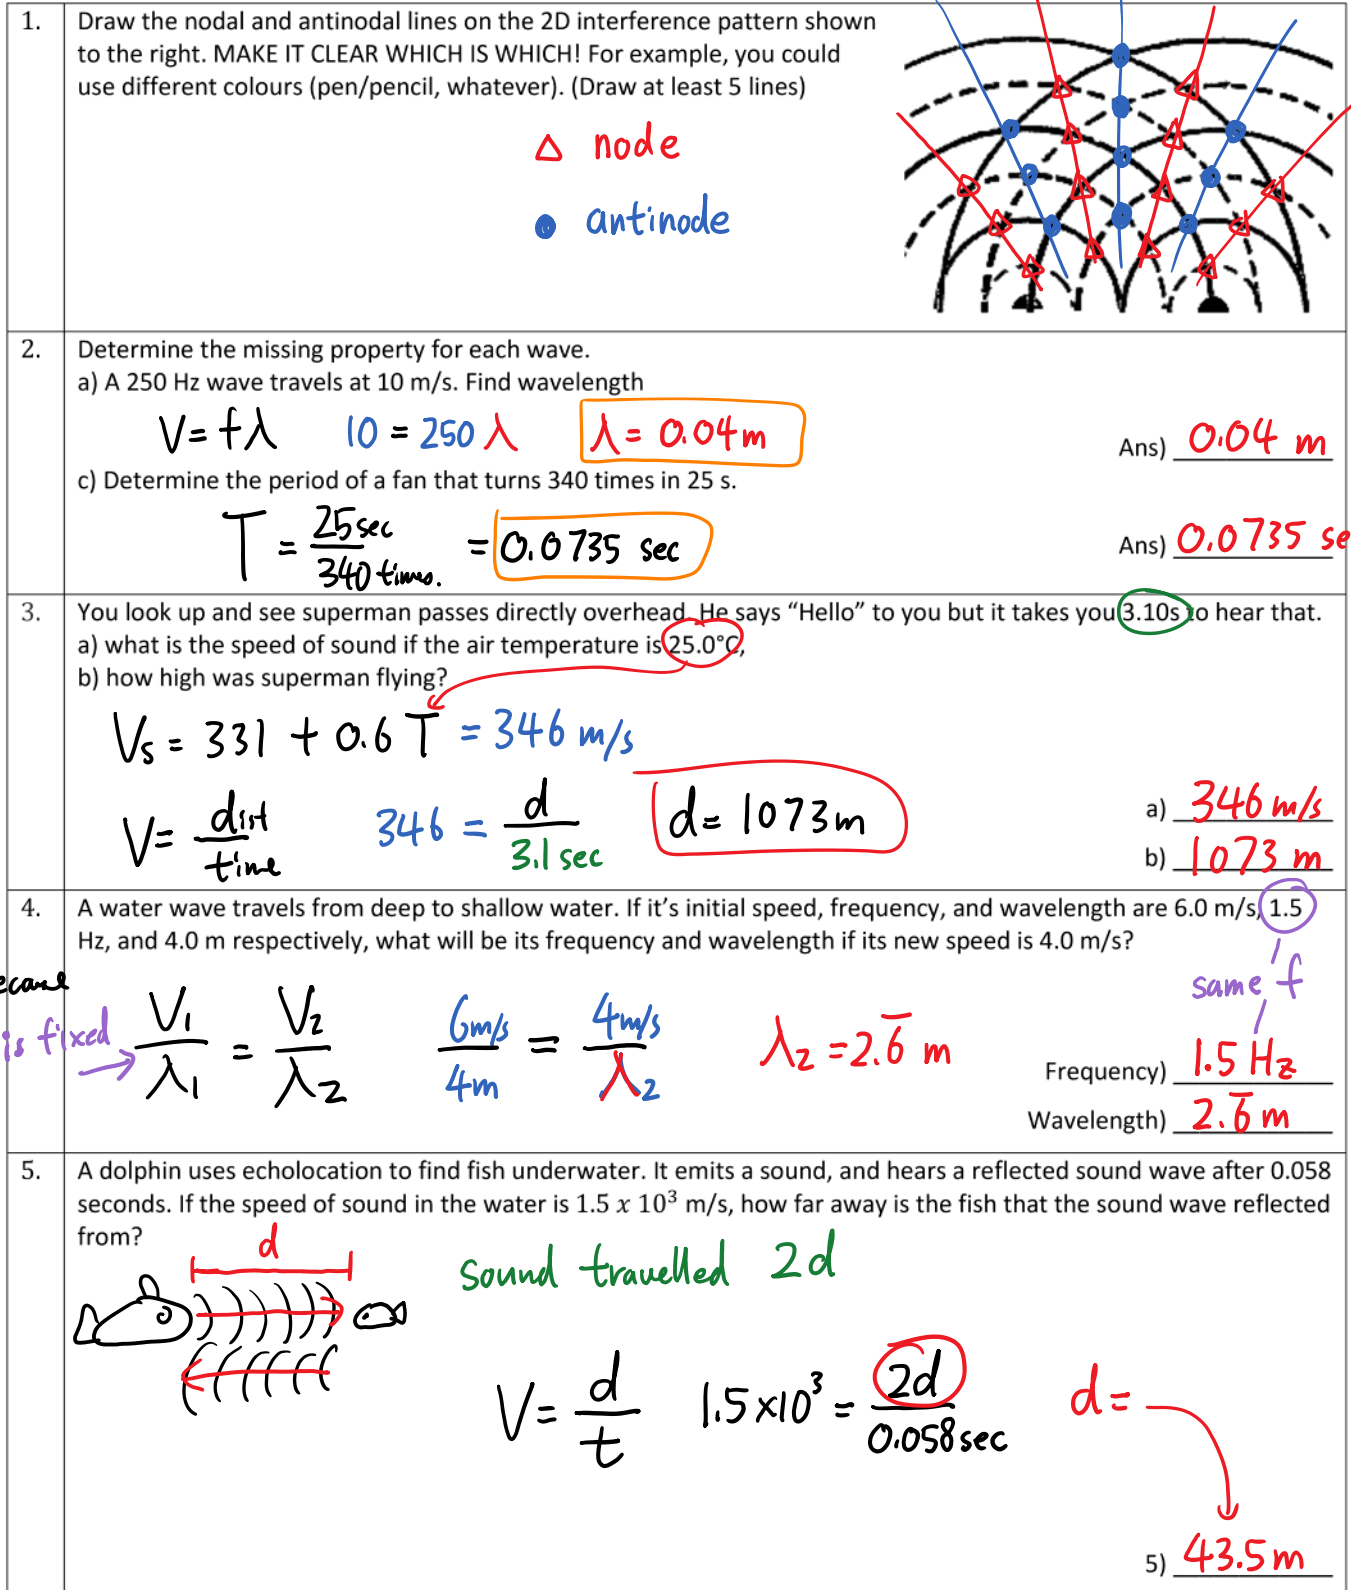 1. Draw the nodal and antinodal lines on the 2D interference pattern shown
to the right. MAKE IT CLEAR WHICH IS WHICH! For example, you could
use different colours (pen/pencil, whatever). (Draw at least 5 lines)
△ node
antinode
2. Determine the missing property for each wave.
a) A 250 Hz wave travels at 10 m/s. Find wavelength
V = fλ 10 = 250 λ λ = 0.04 m
Ans) 0.04 m
c) Determine the period of a fan that turns 340 times in 25 s.
T = 25 sec / 340 times. = 0.0735 sec
Ans) 0.0735 se
3. You look up and see superman passes directly overhead. He says “Hello” to you but it takes you 3.10s to hear that.
a) what is the speed of sound if the air temperature is 25.0°C,
b) how high was superman flying?
Vs = 331 + 0.6 T = 346 m/s
V = dist / time 346 = d / 3.1 sec d = 1073 m
a) 346 m/s
b) 1073 m
4. A water wave travels from deep to shallow water. If it’s initial speed, frequency, and wavelength are 6.0 m/s, 1.5
Hz, and 4.0 m respectively, what will be its frequency and wavelength if its new speed is 4.0 m/s?
same f
ecause
is fixed
V₁ / λ₁ = V₂ / λ₂ 6m/s / 4m = 4m/s / λ₂ λ₂ = 2.6̅ m
Frequency) 1.5 Hz
Wavelength) 2.6̅ m
5. A dolphin uses echolocation to find fish underwater. It emits a sound, and hears a reflected sound wave after 0.058
seconds. If the speed of sound in the water is 1.5 x 10³ m/s, how far away is the fish that the sound wave reflected
from?
d
sound travelled 2d
V = d / t 1.5 ×10³ = 2d / 0.058 sec d =
5) 43.5 m